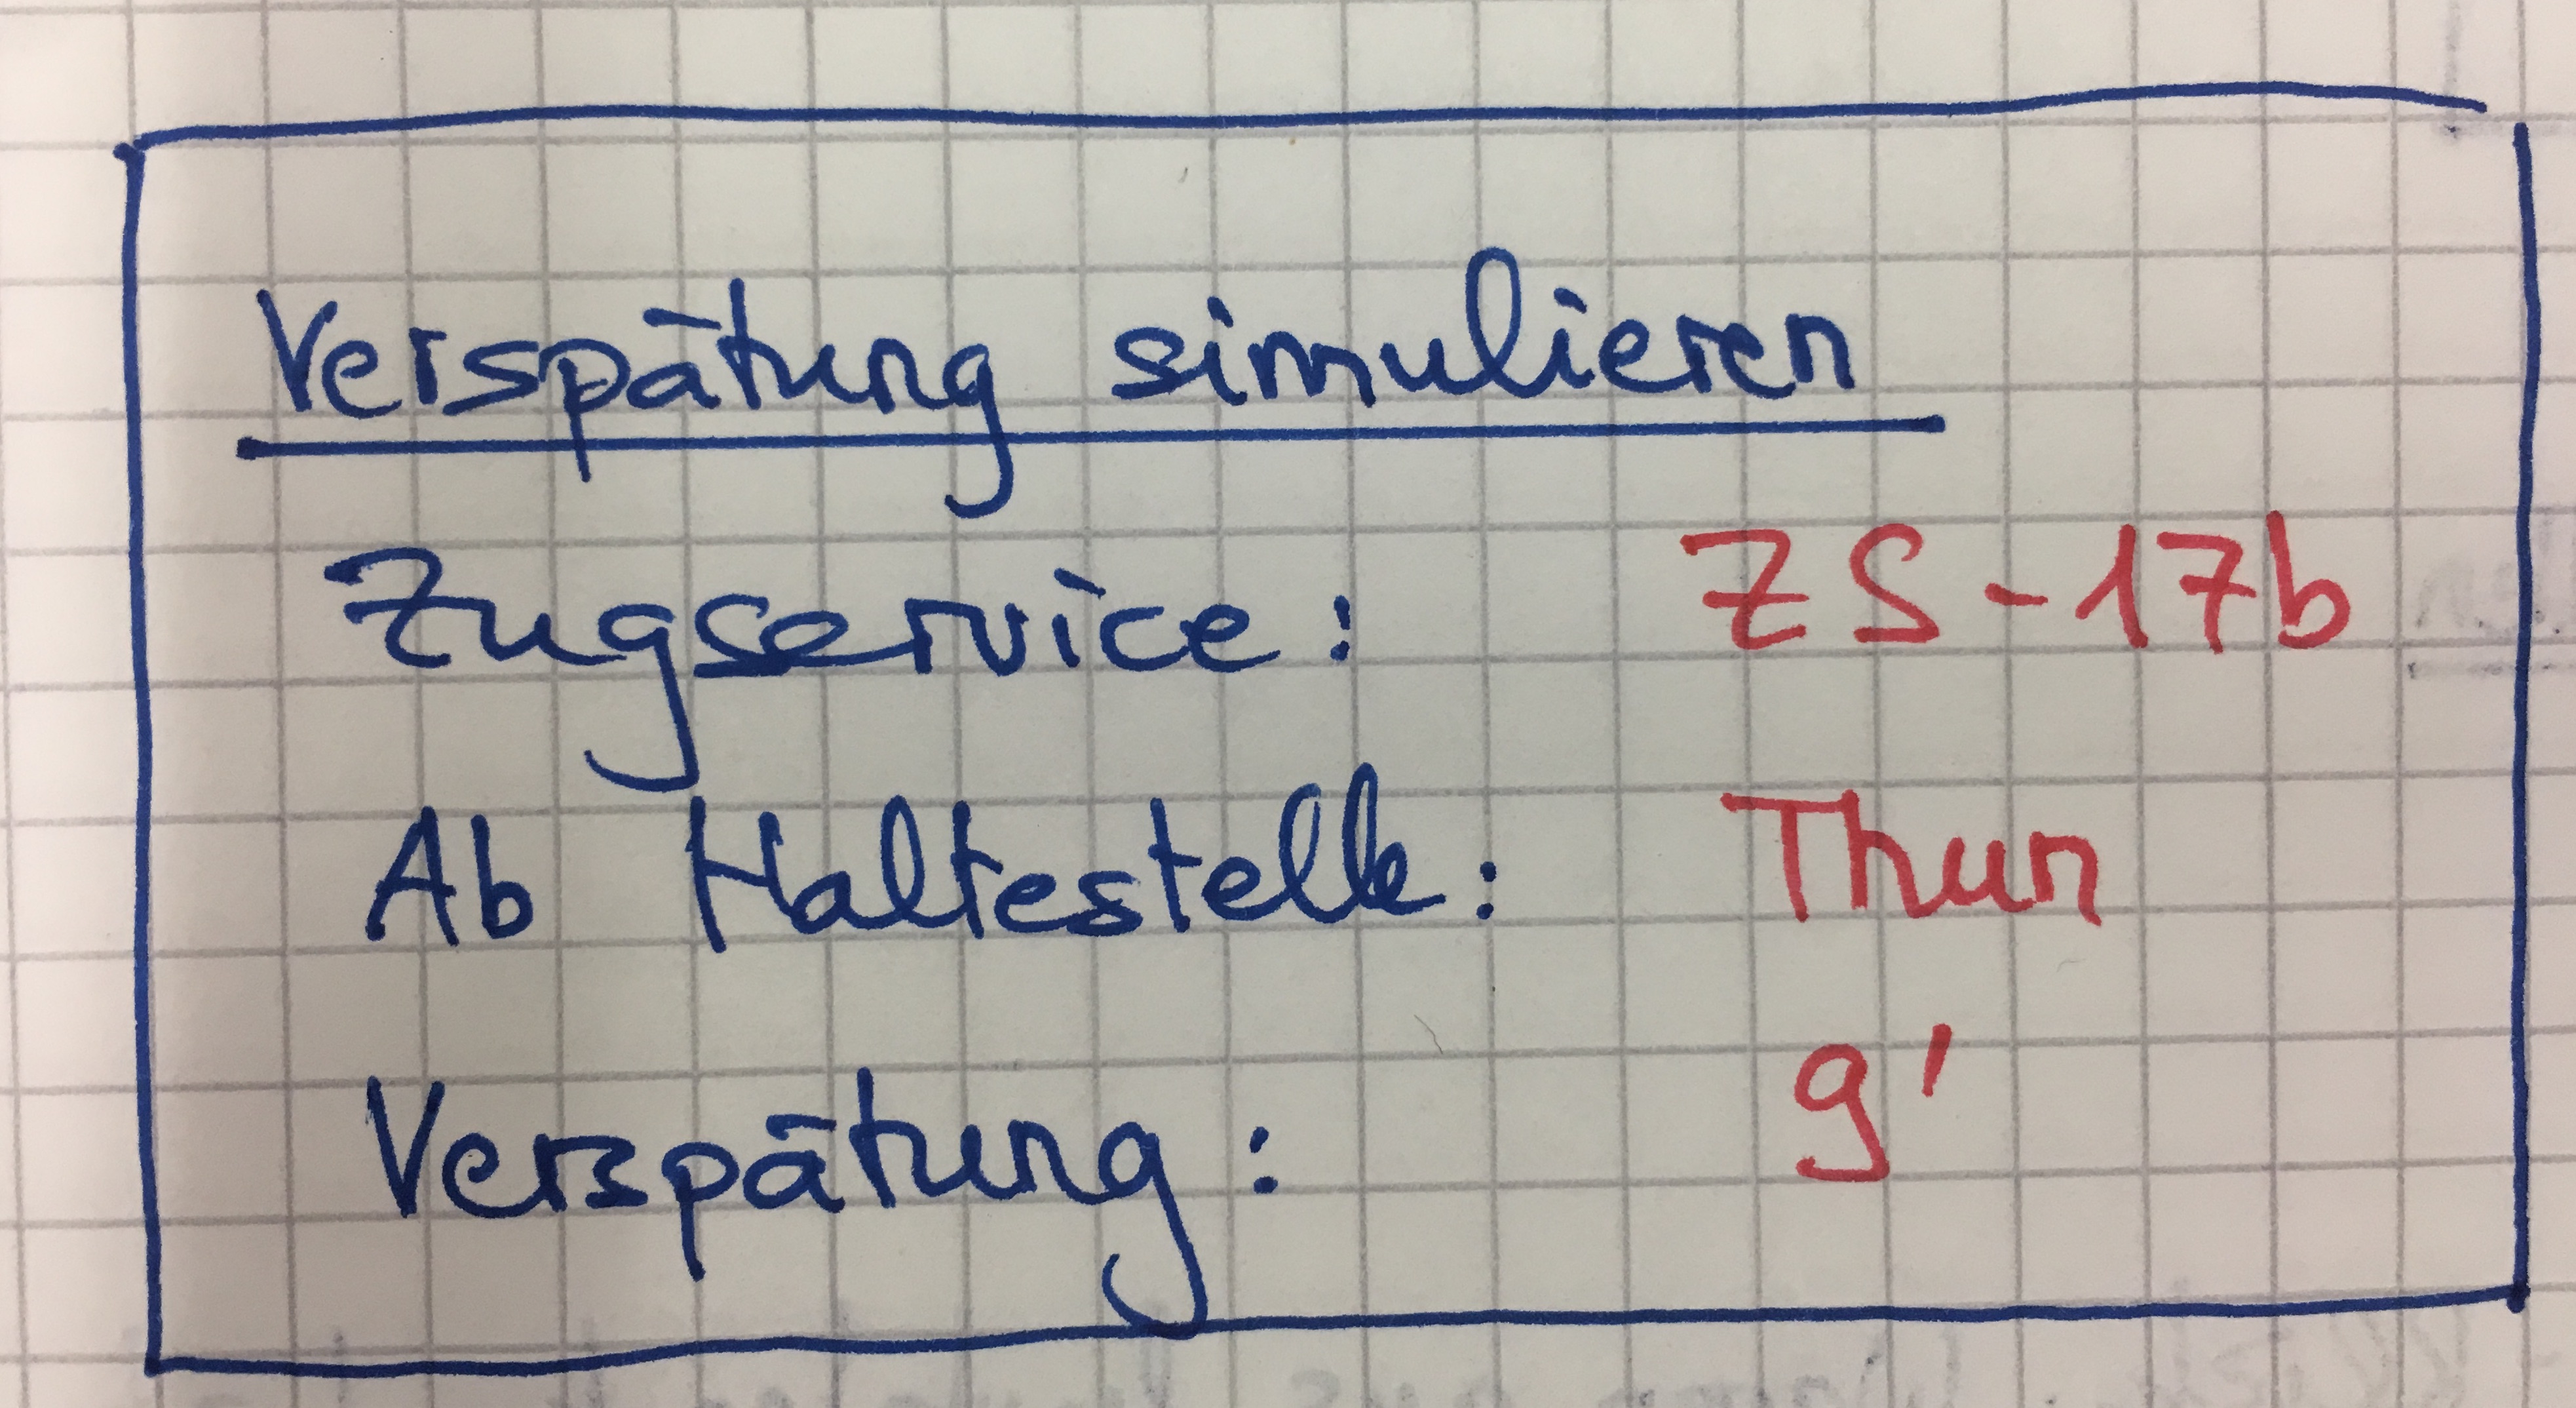 Verspätung simulieren
Zugservice: ZS-17b
Ab Haltestelle: Thun
Verspätung: 9'